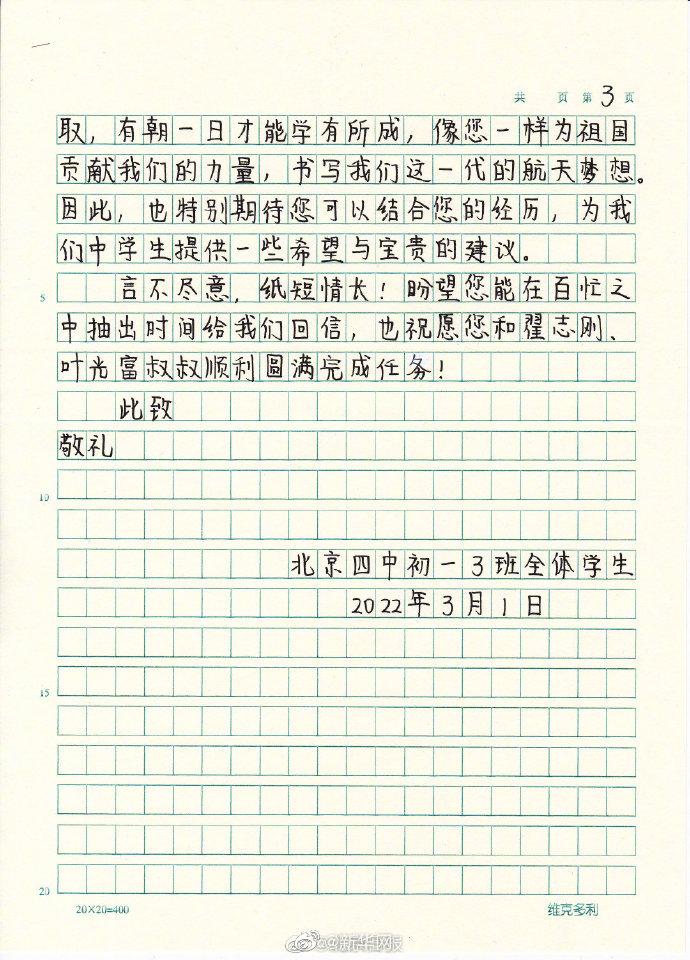 共 页 第 3 页
取，有朝一日才能学有所成，像您一样为祖国
贡献我们的力量，书写我们这一代的航天梦想。
因此，也特别期待您可以结合您的经历，为我
们中学生提供一些希望与宝贵的建议。
5
言不尽意，纸短情长！盼望您能在百忙之
中抽出时间给我们回信，也祝愿您和翟志刚、
叶光富叔叔顺利圆满完成任务！
此致
敬礼
10
北京四中初一3班全体学生
2022年3月1日
15
20
20×20=400 维克多利
@新华网报